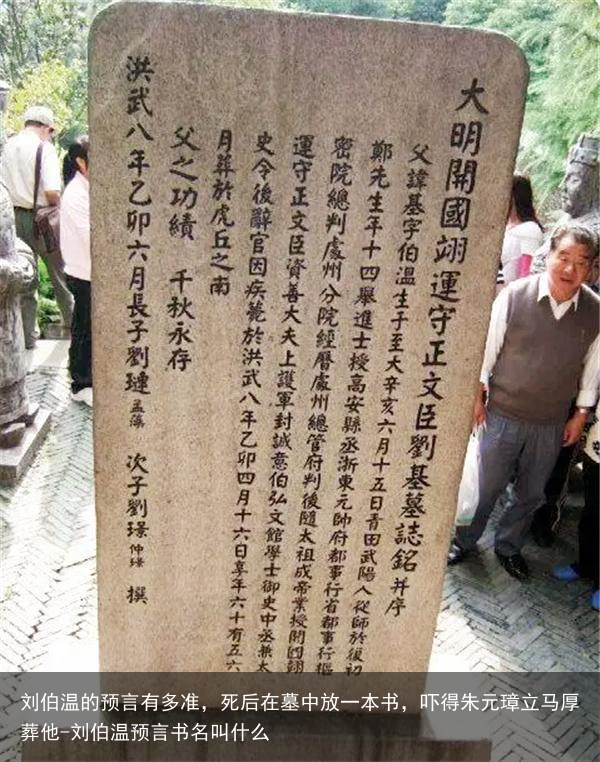 大明開國翊運守正文臣劉基墓誌銘并序
父諱基字伯温生于至大辛亥六月十五日青田武陽人從師於復初
鄭先生年十四舉進士授高安縣丞浙東元帥府都事行省都事行樞
密院總判處州分院經曆處州總管府判後隨太祖成帝業授開國翊
運守正文臣資善大夫上護軍封誠意伯弘文館學士御史中丞兼太
史令後辭官因疾薨於洪武八年乙卯四月十六日享年六十有五六
月葬於虎丘之南
父之功績 千秋永存
洪武八年乙卯六月長子劉璉孟藻 次子劉璟仲璟 撰
刘伯温的预言有多准，死后在墓中放一本书，吓得朱元璋立马厚
葬他-刘伯温预言书名叫什么